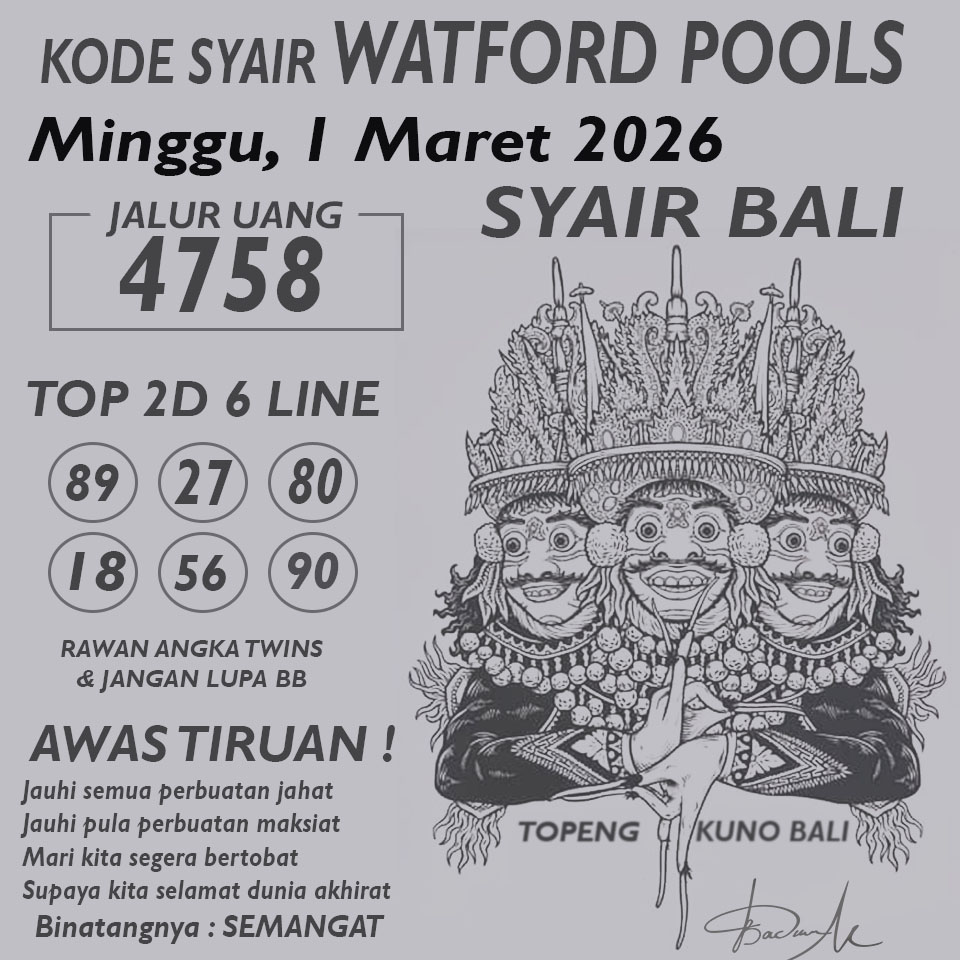 KODE SYAIR WATFORD POOLS
Minggu, 1 Maret 2026
SYAIR BALI
JALUR UANG
4758
TOP 2D 6 LINE
89 27 80
18 56 90
RAWAN ANGKA TWINS
& JANGAN LUPA BB
AWAS TIRUAN !
Jauhi semua perbuatan jahat
Jauhi pula perbuatan maksiat
Mari kita segera bertobat
Supaya kita selamat dunia akhirat
Binatangnya : SEMANGAT
TOPENG KUNO BALI